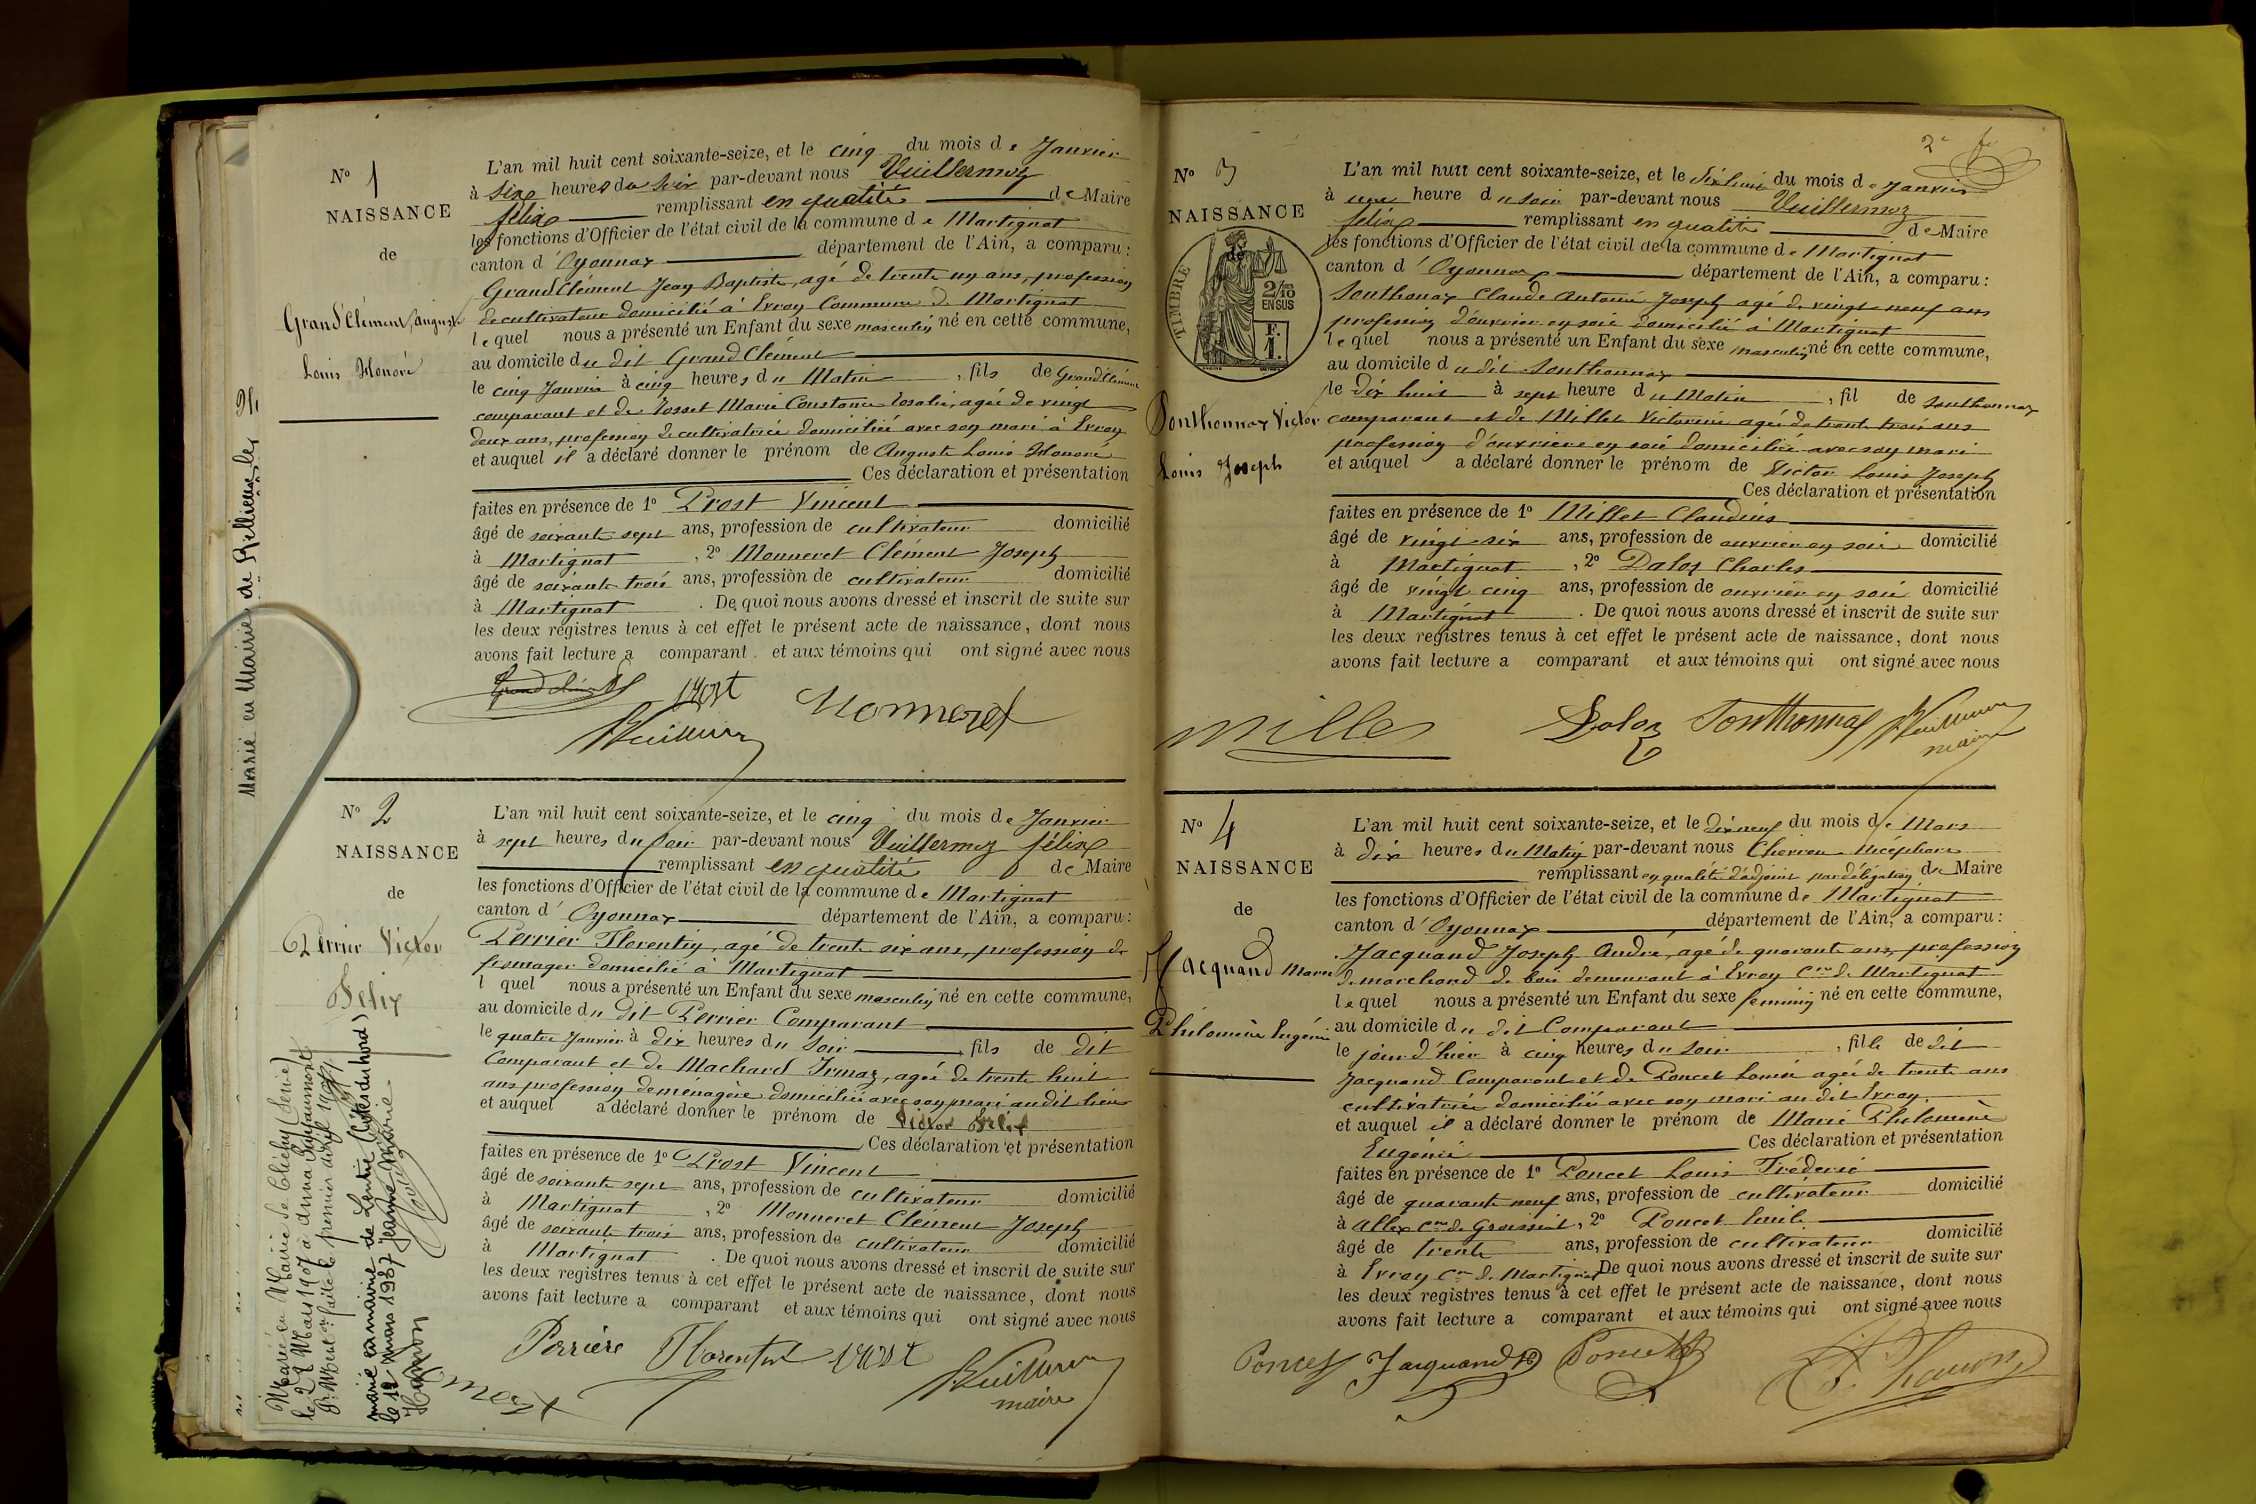 N° 1
NAISSANCE
de
Grand Clément, Auguste
Louis Honoré
L'an mil huit cent soixante-seize, et le cinq du mois de Janvier
à six heures du soir par-devant nous Vuillermoz
félix remplissant en qualité de Maire
les fonctions d'Officier de l'état civil de la commune de Martignat
canton d'Oyonnax département de l'Ain, a comparu :
Grand Clément Jean Baptiste, agé de trente un ans, profession
de cultivateur domicilié à Evron Commune de Martignat
lequel nous a présenté un Enfant du sexe masculin né en cette commune,
au domicile du dit Grand Clément
le cinq Janvier à cinq heures du Matin, fils de Grand Clément
comparant et de Josset Marie Constance Rosalie, agée de vingt
deux ans, profession de cultivatrice domiciliée avec son mari à Evron
et auquel il a déclaré donner le prénom de Auguste Louis Honoré
Ces déclaration et présentation
faites en présence de 1° Prost Vincent
âgé de soixante sept ans, profession de cultivateur domicilié
à Martignat, 2° Monneret Clément Joseph
âgé de soixante trois ans, profession de cultivateur domicilié
à Martignat. De quoi nous avons dressé et inscrit de suite sur
les deux registres tenus à cet effet le présent acte de naissance, dont nous
avons fait lecture a comparant et aux témoins qui ont signé avec nous
Grand clément Prost Monneret
Vuillermoz
Marié en Mairie de Rillieux le
N° 2
NAISSANCE
de
Perrier Victor
Félix
L'an mil huit cent soixante-seize, et le cinq du mois de Janvier
à sept heures du soir par-devant nous Vuillermoz félix
remplissant en qualité de Maire
les fonctions d'Officier de l'état civil de la commune de Martignat
canton d'Oyonnax département de l'Ain, a comparu :
Perrier Florentin, agé de trente six ans, profession de
fromager domicilié à Martignat
l quel nous a présenté un Enfant du sexe masculin né en cette commune,
au domicile du dit Perrier Comparant
le quatre Janvier à dix heures du soir, fils de dit
Comparant et de Machard Irmaz, agée de trente huit
ans profession de ménagère domiciliée avec son mari audit lieu
et auquel a déclaré donner le prénom de Victor Félix
Ces déclaration et présentation
faites en présence de 1° Prost Vincent
âgé de soixante sept ans, profession de cultivateur domicilié
à Martignat, 2° Monneret Clément Joseph
âgé de soixante trois ans, profession de cultivateur domicilié
à Martignat. De quoi nous avons dressé et inscrit de suite sur
les deux registres tenus à cet effet le présent acte de naissance, dont nous
avons fait lecture a comparant et aux témoins qui ont signé avec nous
Perrière Florentin Prost Vuillermoz
maire
Marié en Mairie de Clichy (Seine)
le 21 Mars 1907 à
premier avril 1907
marié en mairie de (Côtes du Nord)
le 12 mars 1937 Jeanne Marie
Hamon
2e
N° 3
NAISSANCE
de
TIMBRE
2/10
EN SUS
F.
1.
Sonthonnax Victor
Louis Joseph
L'an mil huit cent soixante-seize, et le dixhuit du mois de Janvier
à une heure du soir par-devant nous Vuillermoz
félix remplissant en qualité de Maire
les fonctions d'Officier de l'état civil de la commune de Martignat
canton d'Oyonnax département de l'Ain, a comparu :
Sonthonax Claude Antoine Joseph agé de vingt neuf ans
profession d'ouvrier en soie domicilié à Martignat
lequel nous a présenté un Enfant du sexe masculin né en cette commune,
au domicile du dit Sonthonnax
le dix huit à sept heure du Matin, fil de Sonthonnax
comparant et de Millet Victorine agée de trente trois ans
profession d'ouvrière en soie domiciliée avec son mari
et auquel a déclaré donner le prénom de Victor Louis Joseph
Ces déclaration et présentation
faites en présence de 1° Millet Claudius
âgé de vingt six ans, profession de ouvrier en soie domicilié
à Martignat, 2° Daloz Charles
âgé de vingt cinq ans, profession de ouvrier en soie domicilié
à Martignat. De quoi nous avons dressé et inscrit de suite sur
les deux registres tenus à cet effet le présent acte de naissance, dont nous
avons fait lecture a comparant et aux témoins qui ont signé avec nous
Millet Daloz Sonthonnax Vuillermoz
maire
N° 4
NAISSANCE
de
Jacquand Marie
Philomène Eugénie
L'an mil huit cent soixante-seize, et le dixneuf du mois de Mars
à dix heures du Matin par-devant nous
remplissant en qualité d'adjoint par délégation de Maire
les fonctions d'Officier de l'état civil de la commune de Martignat
canton d'Oyonnax département de l'Ain, a comparu :
Jacquand Joseph André, agé de quarante ans, profession
de marchand de bois demeurant à Evron Cne de Martignat
lequel nous a présenté un Enfant du sexe feminin né en cette commune,
au domicile du dit Comparant
le jour d'hier à cinq heures du soir, fille de dit
Jacquand Comparant et de Poncet Louise agée de trente ans
cultivatrice domiciliée avec son mari au dit Evron.
et auquel il a déclaré donner le prénom de Marie Philomène
Eugénie Ces déclaration et présentation
faites en présence de 1° Poncet Louis Fréderic
âgé de quarante neuf ans, profession de cultivateur domicilié
à Allex Cne de Groissiat, 2° Poncet Emile
âgé de trente ans, profession de cultivateur domicilié
à Evron Cne de Martignat De quoi nous avons dressé et inscrit de suite sur
les deux registres tenus à cet effet le présent acte de naissance, dont nous
avons fait lecture a comparant et aux témoins qui ont signé avec nous
Poncet Jacquand Poncet